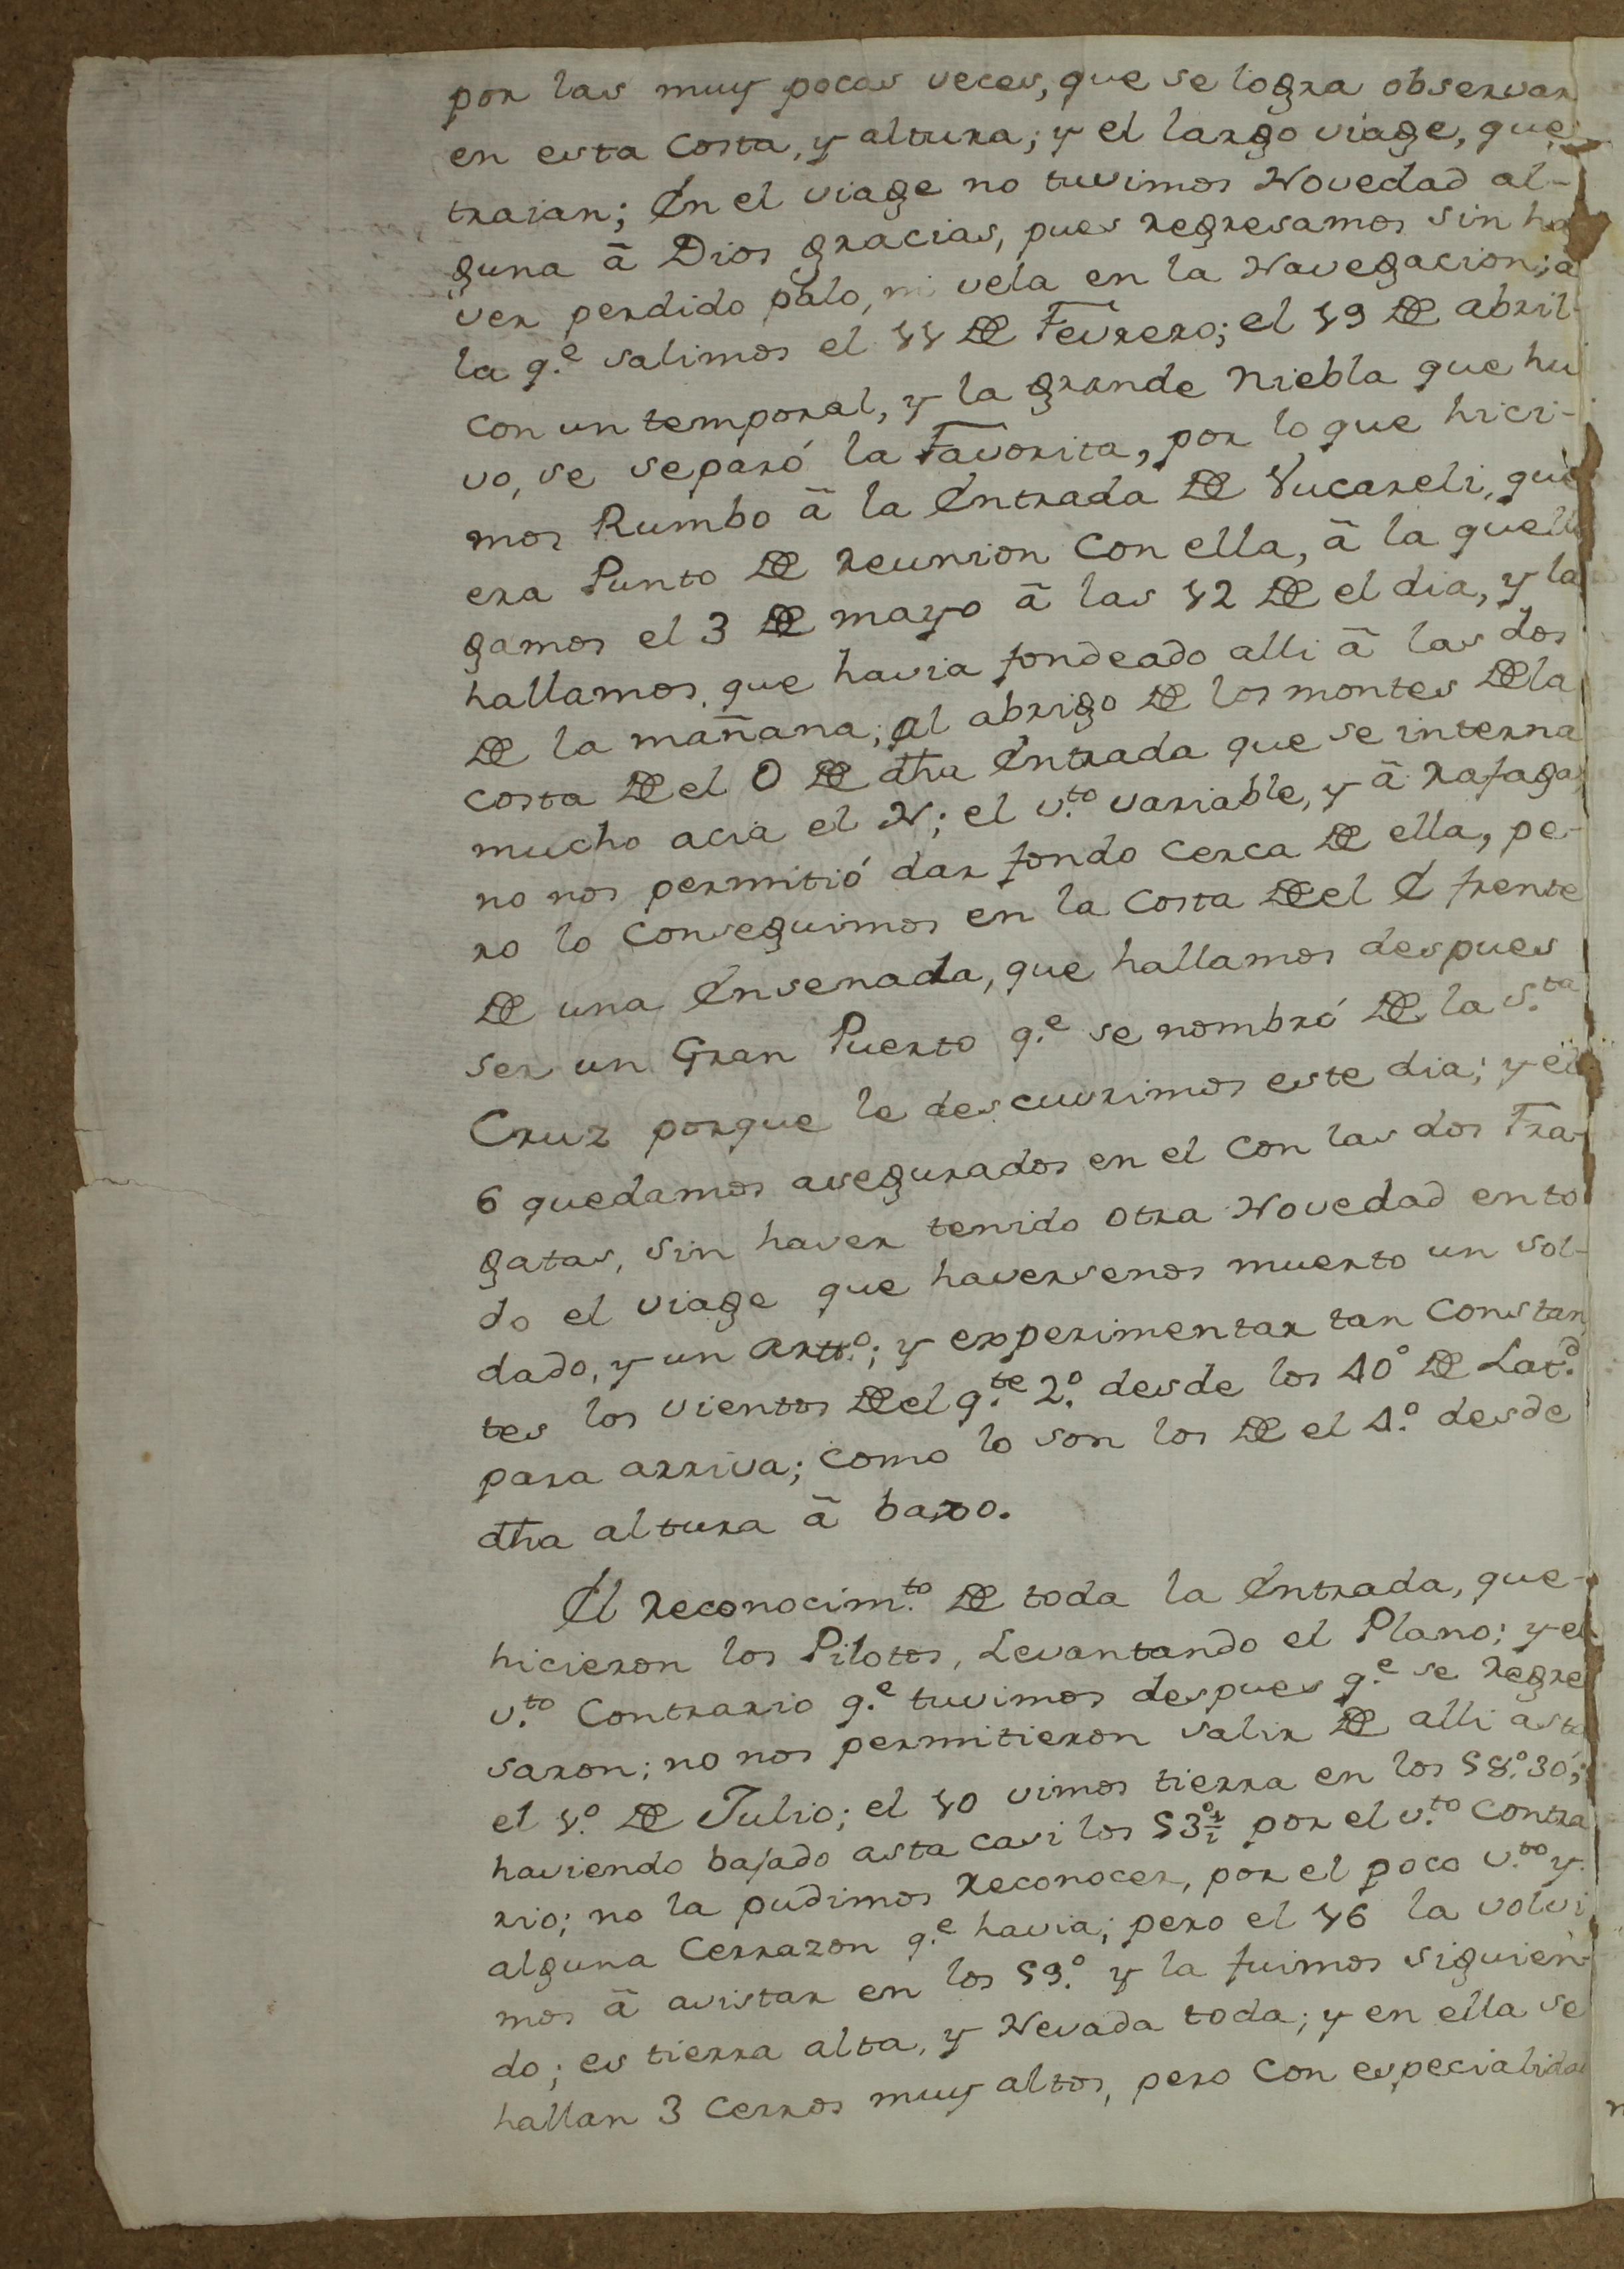 por las muy pocas veces, que se logra observar
en esta Costa, y altura; y el largo viage, que
traian; En el viage no tuvimos Novedad al-
guna â Dios gracias, pues regresamos sin ha
ver perdido palo, ni vela en la Navegacion; a
la q.e salimos el 11 De Fevrero; el 19 De abril
con un temporal, y la grande Niebla que hu
vo, se separó la Favorita, por lo que hici-
mos Rumbo â la Entrada De Bucareli, que
era Punto De reunion Con ella, â la que lle
gamos el 3 De mayo â las 12 De el dia, y la
hallamos, que havia fondeado alli â las dos
De la mañana; al abrigo De los montes De la
costa De el O De dha Entrada que se interna
mucho acia el N; el v.to variable, y â rafaga
no nos permitió dar fondo cerca De ella, pe-
ro lo Conseguimos en la Costa De el E frente
De una Ensenada, que hallamos despues
ser un Gran Puerto q.e se nombró De la S.ta
Cruz porque le descuvrimos este dia; y el
6 quedamos asegurados en el Con las dos Fra-
gatas, Sin haver tenido Otra Novedad en to
do el viage que haversenos muerto un sol-
dado, y un artt.o; y experimentar tan Constan
tes los vientos De el q.te 2.o desde los 40° De Lat.d
para arriva; Como lo son los De el 4.o desde
dha altura â baxo.
El reconocim.to De toda la Entrada, que-
hicieron los Pilotos, Levantando el Plano; y el
v.to Contrario q.e tuvimos despues q.e se regre
saron; no nos permitieron salir De alli asta
el 1.o De Julio; el 10 vimos tierra en los 58.°30;
haviendo bajado asta casi los 53°½ por el v.to Contra
rio; no la pudimos reconocer, por el poco v.to y
alguna Cerrazon q.e havia; pero el 16 la volvi
mos â avistar en los 59.° y la fuimos siguien-
do; es tierra alta, y Nevada toda; y en ella se
hallan 3 Cerros muy altos, pero Con especialidad